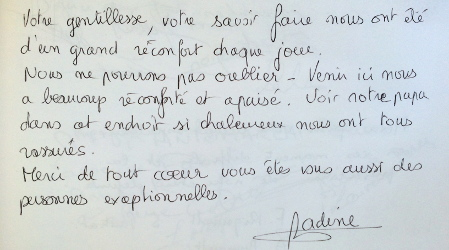 Votre gentillesse, votre savoir faire nous ont été
d'un grand réconfort chaque jour.
Nous ne pouvons pas oublier - Venir ici nous
a beaucoup réconforté et apaisé. Voir notre papa
dans cet endroit si chaleureux nous ont tous
rassurés.
Merci de tout coeur vous êtes vous aussi des
personnes exceptionnelles.
Nadine